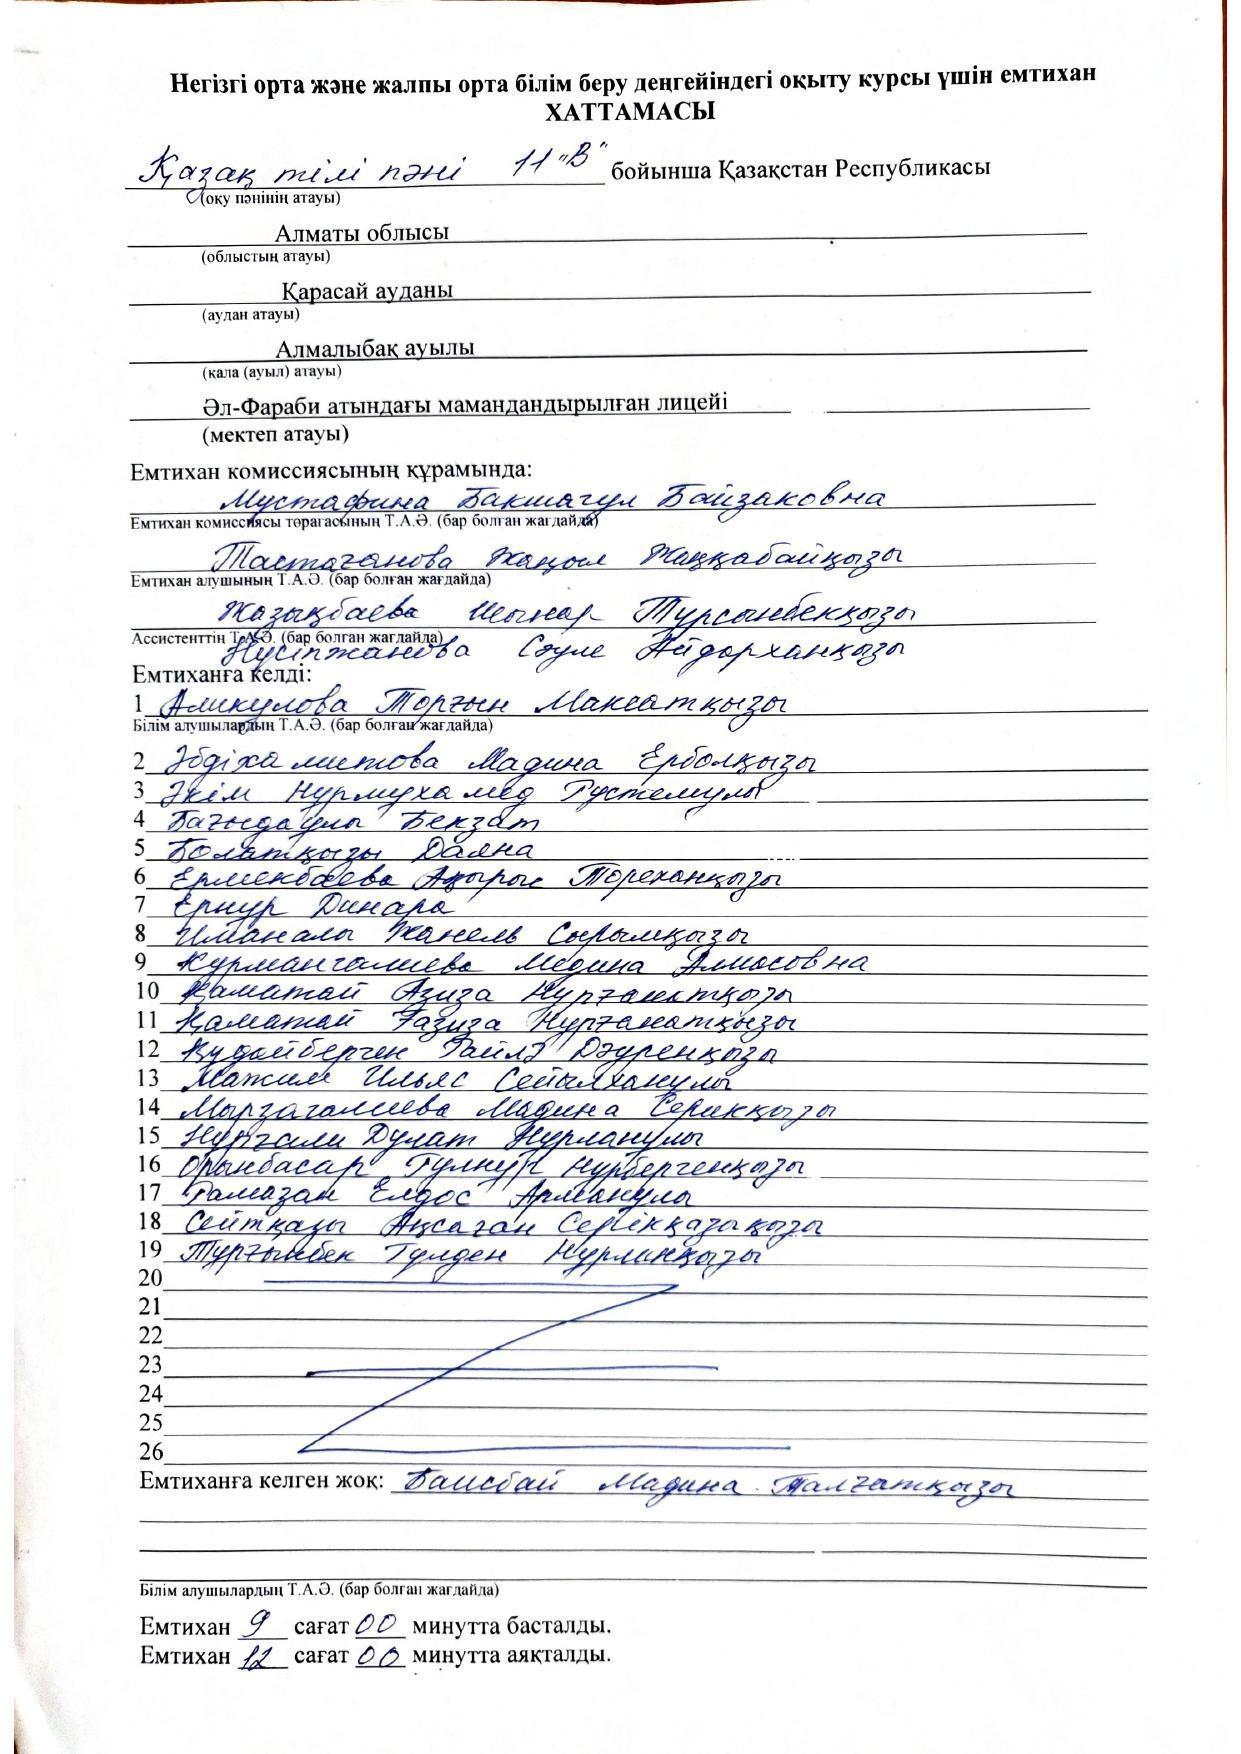 Негізгі орта және жалпы орта білім беру деңгейіндегі оқыту курсы үшін емтихан
ХАТТАМАСЫ
Қазақ тілі пәні 11 "В" бойынша Қазақстан Республикасы
(оқу пәнінің атауы)
Алматы облысы
(облыстың атауы)
Қарасай ауданы
(аудан атауы)
Алмалыбақ ауылы
(қала (ауыл) атауы)
Әл-Фараби атындағы мамандандырылған лицейі
(мектеп атауы)
Емтихан комиссиясының құрамында:
Мустафина Бакшагул Байзаковна
Емтихан комиссиясы төрағасының Т.А.Ә. (бар болған жағдайда)
Тастаганова Жаңыл Жаңқабайқызы
Емтихан алушының Т.А.Ә. (бар болған жағдайда)
Жазықбаева Шынар Турсынбекқызы
Ассистенттін Т.А.Ә. (бар болған жағдайда)
Нүсіпжанова Сәуле Айдарханқызы
Емтиханға келді:
1 Аликулова Торғын Максатқызы
Білім алушылардың Т.А.Ә. (бар болған жағдайда)
2 Әбдіхамитова Мадина Ерболқызы
3 Әкім Нурмухамед Рустемулы
4 Бағыдаулы Бекзат
5 Болатқызы Даяна
6 Ермекбаева Ақырыс Тореханқызы
7 Ернур Динара
8 Иманалы Жанель Сырымқызы
9 Курмангалиева Медина Алмасовна
10 Қаматай Азиза Нурғанатқызы
11 Қаматай Ғазиза Нурғанатқызы
12 Құдайберген Райлә Дәуренқызы
13 Мажим Ильяс Сейылханулы
14 Мырзагалиева Мадина Серикқызы
15 Нурғали Дулат Нурланулы
16 Орынбасар Гулнұр Нурбергенқызы
17 Рамазан Елдос Арманулы
18 Сейтқазы Ақсаған Серікқазықызы
19 Турғынбек Гүлден Нурланқызы
20
21
22
23
24
25
26
Емтиханға келген жоқ: Баисбай Мадина Талғатқызы
Білім алушылардың Т.А.Ә. (бар болған жағдайда)
Емтихан 9 сағат 00 минутта басталды.
Емтихан 12 сағат 00 минутта аяқталды.